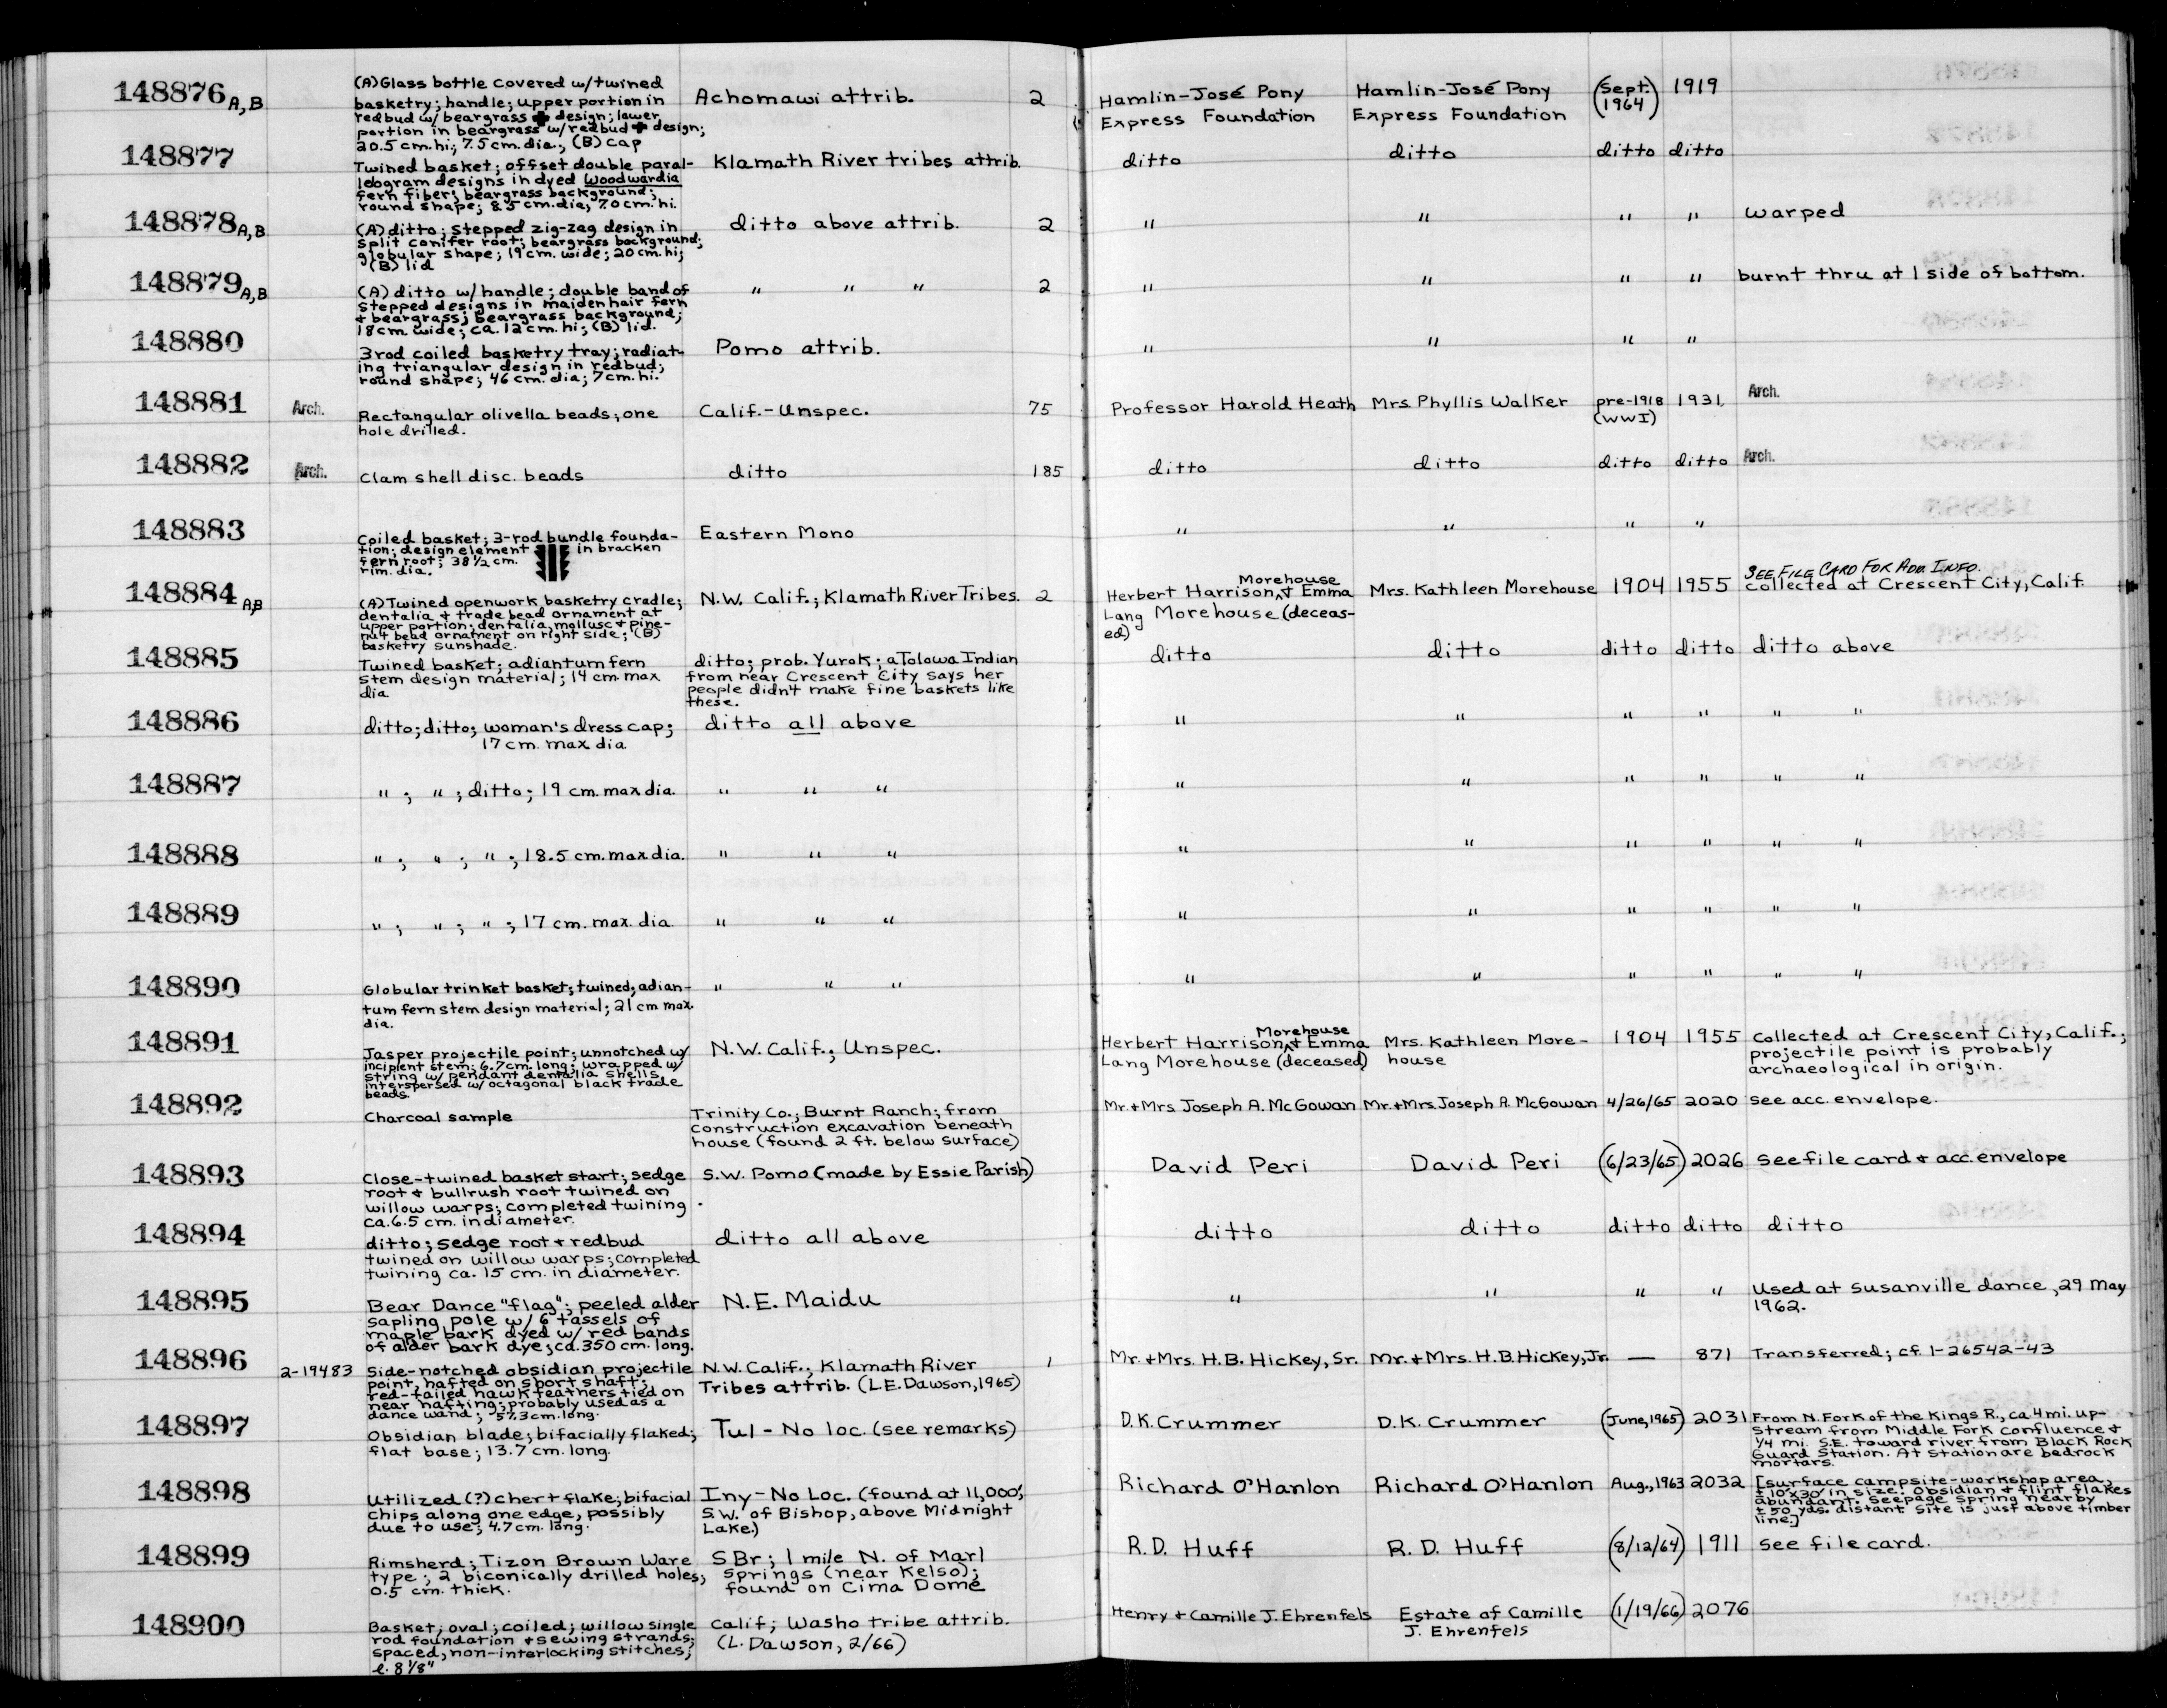 148876 A,B
(A) Glass bottle covered w/twined
basketry; handle; upper portion in
redbud w/ beargrass ✚ design; lower
portion in beargrass w/redbud ✚ design;
20.5 cm. hi; 7.5 cm. dia., (B) cap
Achomawi attrib.
2
Hamlin-José Pony
Express Foundation
Hamlin-José Pony
Express Foundation
(Sept.
1964)
1919
148877
Twined basket; offset double paral-
lelogram designs in dyed Woodwardia
fern fiber; beargrass background;
round shape; 8.5 cm. dia; 7.0 cm. hi.
Klamath River tribes attrib.
ditto
ditto
ditto
ditto
148878 A,B
(A) ditto; stepped zig-zag design in
split conifer root; beargrass background;
globular shape; 19 cm. wide; 20 cm. hi;
(B) lid
ditto above attrib.
2
"
"
"
"
warped
148879 A,B
(A) ditto w/ handle; double band of
stepped designs in maidenhair fern
+ beargrass; beargrass background;
18 cm. wide; ca. 12 cm. hi; (B) lid.
" " "
2
"
"
"
"
burnt thru at 1 side of bottom.
148880
3 rod coiled basketry tray; radiat-
ing triangular design in redbud;
round shape; 46 cm. dia; 7 cm. hi.
Pomo attrib.
"
"
"
"
148881
Arch.
Rectangular olivella beads; one
hole drilled.
Calif.-Unspec.
75
Professor Harold Heath
Mrs Phyllis Walker
pre-1918
(WWI)
1931
Arch.
148882
Arch.
Clam shell disc. beads
ditto
185
ditto
ditto
ditto
ditto
Arch.
148883
Coiled basket; 3-rod bundle founda-
tion; design element in bracken
fern root; 38 1/2 cm.
rim. dia.
Eastern Mono
"
"
"
"
148884 A,B
(A) Twined openwork basketry cradle;
dentalia + trade bead ornament at
upper portion; dentalia, mollusc + pine-
nut bead ornament on right side; (B)
basketry sunshade.
N.W. Calif.; Klamath River Tribes.
2
Morehouse
Herbert Harrison ^ + Emma
Lang Morehouse (deceas-
ed)
Mrs. Kathleen Morehouse
1904
1955
SEE FILE CARD FOR ADD. INFO.
Collected at Crescent City, Calif.
148885
Twined basket; adiantum fern
stem design material; 14 cm. max
dia
ditto; prob. Yurok; a Tolowa Indian
from near Crescent City says her
people didn't make fine baskets like
these.
ditto
ditto
ditto
ditto
ditto above
148886
ditto; ditto; woman's dress cap;
17 cm. max dia
ditto all above
"
"
"
"
" "
148887
" ; " ; ditto; 19 cm. max dia.
" " "
"
"
"
"
" "
148888
" ; " ; " ; 18.5 cm. max dia.
" " "
"
"
"
"
" "
148889
" ; " ; " ; 17 cm. max. dia
" " "
"
"
"
"
" "
148890
Globular trinket basket; twined; adian-
tum fern stem design material; 21 cm max.
dia.
" " "
"
"
"
"
" "
148891
Jasper projectile point; unnotched w/
incipient stem; 6.7 cm. long; wrapped w/
string w/ pendant dentalia shells
interspersed w/ octagonal black trade
beads.
N.W. Calif.; Unspec.
Morehouse
Herbert Harrison ^ + Emma
Lang Morehouse (deceased)
Mrs. Kathleen More-
house
1904
1955
Collected at Crescent City, Calif.;
projectile point is probably
archaeological in origin.
148892
Charcoal sample
Trinity Co.; Burnt Ranch; from
construction excavation beneath
house (found 2 ft. below surface)
Mr. + Mrs Joseph A. McGowan
Mr. + Mrs Joseph A. McGowan
4/26/65
2020
See acc. envelope.
148893
Close-twined basket start; sedge
root + bullrush root twined on
willow warps; completed twining
ca. 6.5 cm. in diameter.
S.W. Pomo (made by Essie Parish)
David Peri
David Peri
(6/23/65)
2026
See file card + acc. envelope
148894
ditto; sedge root + redbud
twined on willow warps; completed
twining ca. 15 cm. in diameter.
ditto all above
ditto
ditto
ditto
ditto
ditto
148895
Bear Dance "flag"; peeled alder
sapling pole w/ 6 tassels of
maple bark dyed w/ red bands
of alder bark dye; ca. 350 cm. long.
N.E. Maidu
"
"
"
"
Used at Susanville dance, 29 May
1962.
148896
2-19483
Side-notched obsidian projectile
point, hafted on short shaft;
red-tailed hawk feathers tied on
near hafting; probably used as a
dance wand; 57.3 cm. long.
N.W. Calif.; Klamath River
Tribes attrib. (L.E. Dawson, 1965)
1
Mr. + Mrs. H.B. Hickey, Sr.
Mr. + Mrs. H.B. Hickey, Jr.
—
871
Transferred; cf. 1-26542-43
148897
Obsidian blade; bifacially flaked;
flat base; 13.7 cm. long.
Tul - No loc. (see remarks)
D.K. Crummer
D.K. Crummer
(June, 1965)
2031
From N. Fork of the Kings R., ca 4 mi. up-
stream from Middle Fork confluence +
1/4 mi. S.E. toward river from Black Rock
Guard Station. At station are bedrock
mortars.
148898
Utilized (?) chert flake; bifacial
chips along one edge, possibly
due to use; 4.7 cm. long.
Iny - No Loc. (found at 11,000',
S.W. of Bishop, above Midnight
Lake.)
Richard O'Hanlon
Richard O'Hanlon
Aug., 1963
2032
[surface campsite-workshop area,
± 10'x30' in size. Obsidian + flint flakes
abundant. Seepage spring nearby
± 50 yds. distant. Site is just above timber
line.]
148899
Rimsherd; Tizon Brown Ware
type; 2 biconically drilled holes;
0.5 cm. thick.
SBr; 1 mile N. of Marl
Springs (near Kelso);
found on Cima Dome
R.D. Huff
R.D. Huff
(8/12/64)
1911
See file card.
148900
Basket; oval; coiled; willow single
rod foundation + sewing strands;
spaced, non-interlocking stitches;
l. 8 1/8"
Calif; Washo tribe attrib.
(L. Dawson, 2/66)
Henry + Camille J. Ehrenfels
Estate of Camille
J. Ehrenfels
(1/19/66)
2076